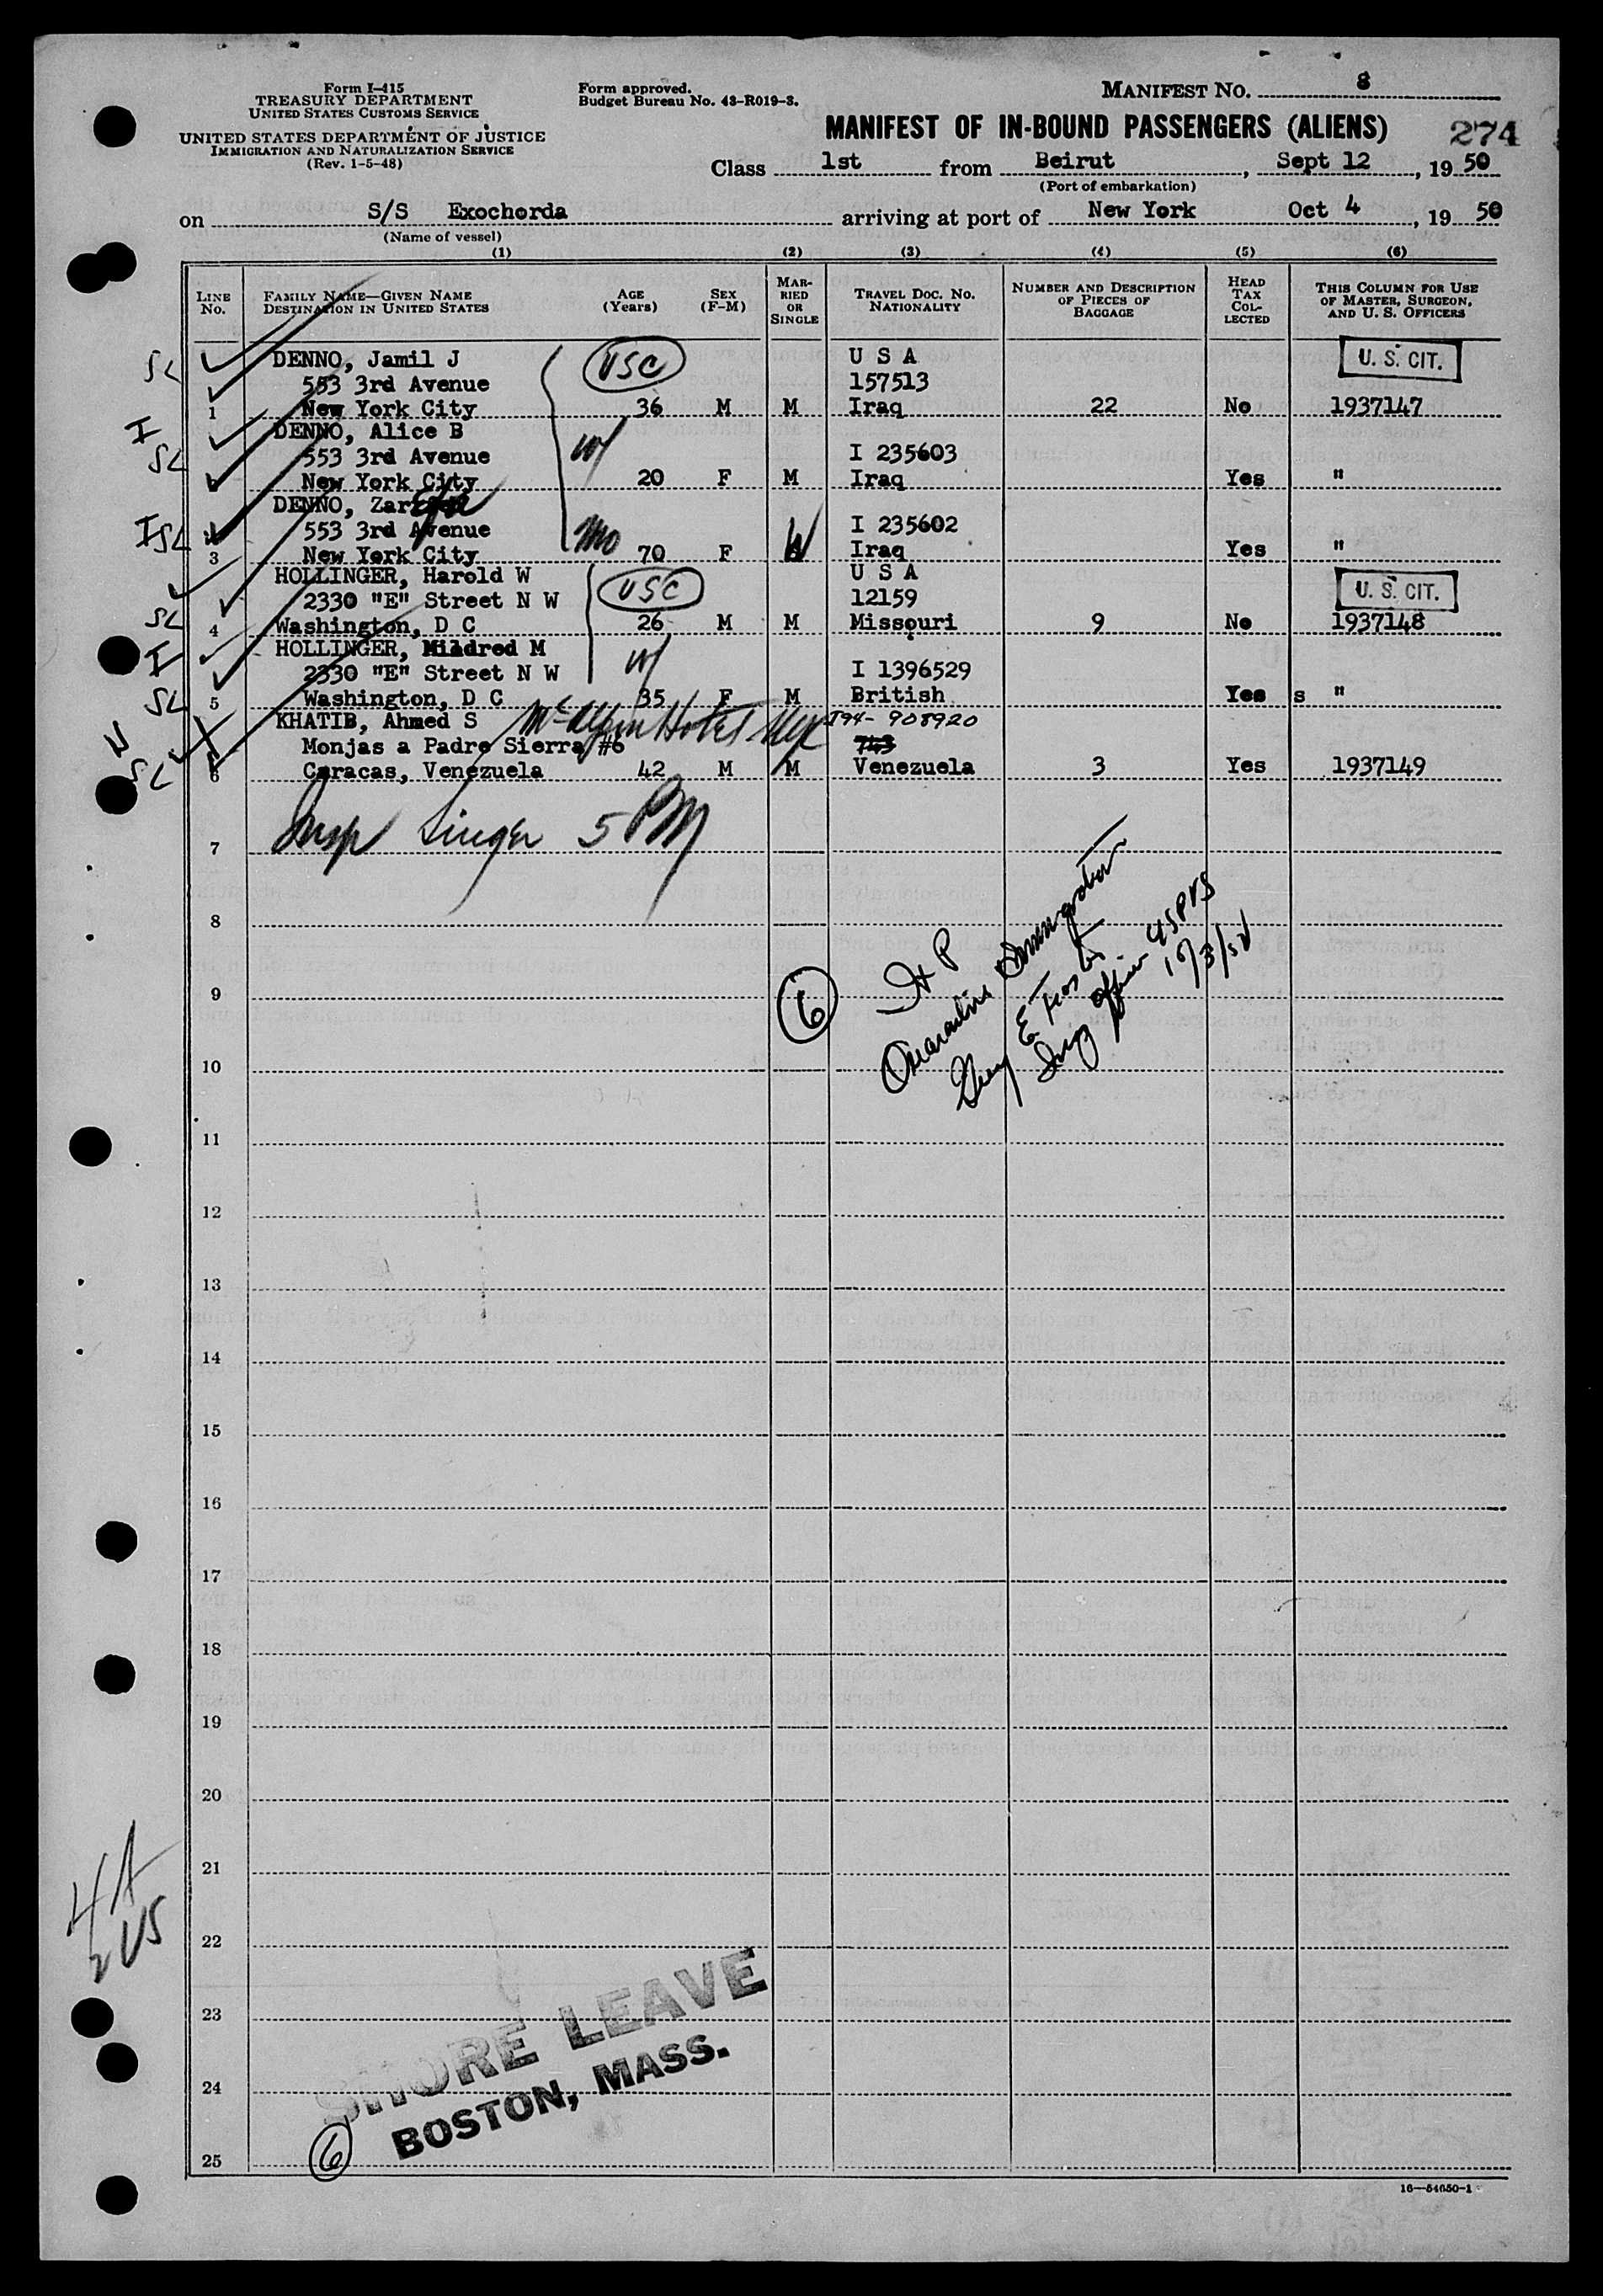 Form I-415
TREASURY DEPARTMENT
UNITED STATES CUSTOMS SERVICE
UNITED STATES DEPARTMENT OF JUSTICE
IMMIGRATION AND NATURALIZATION SERVICE
(Rev. 1-5-48)
Form approved.
Budget Bureau No. 43-R019-3.
MANIFEST NO. 8
MANIFEST OF IN-BOUND PASSENGERS (ALIENS) 274
Class 1st from Beirut, Sept 12, 1950
(Port of embarkation)
on S/S Exochorda arriving at port of New York Oct 4, 1950
(Name of vessel)
(1) (2) (3) (4) (5) (6)
LINE NO. FAMILY NAME—GIVEN NAME DESTINATION IN UNITED STATES AGE (Years) SEX (F-M) MARRIED OR SINGLE TRAVEL DOC. NO. NATIONALITY NUMBER AND DESCRIPTION OF PIECES OF BAGGAGE HEAD TAX COLLECTED THIS COLUMN FOR USE OF MASTER, SURGEON, AND U. S. OFFICERS
SL DENNO, Jamil J USC U S A U. S. CIT.
553 3rd Avenue 157513
1 New York City 36 M M Iraq 22 No 1937147
I DENNO, Alice B
SL 553 3rd Avenue W/ I 235603
New York City 20 F M Iraq Yes "
DENNO, Zar
I SL 553 3rd Avenue Mo I 235602
3 New York City 70 F W Iraq Yes "
HOLLINGER, Harold W USC U S A U. S. CIT.
2330 "E" Street N W 12159
SL 4 Washington, D C 26 M M Missouri 9 No 1937148
I HOLLINGER, Mildred M
2330 "E" Street N W W/ I 1396529
SL 5 Washington, D C 35 F M British Yes s "
KHATIB, Ahmed S McAlpin Hotel NYC I94- 908920
N Monjas a Padre Sierra #6 743
SL 6 Caracas, Venezuela 42 M M Venezuela 3 Yes 1937149
Insp Singer 5 PM
7
8
9
6
Quarantine
Insp Officer USPHS
10
11
12
13
14
15
16
17
18
19
20
21
4A
2 US
22
23
24
25
SHORE LEAVE
BOSTON, MASS.
6
16—54650-1